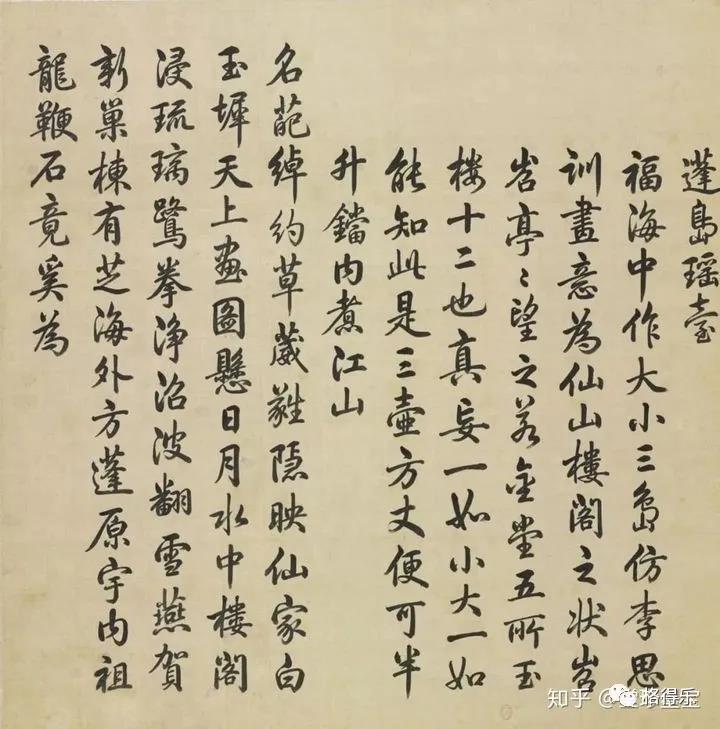 蓬島瑶臺
福海中作大小三島仿李思
訓畫意為仙山樓閣之狀岧
岧亭〻望之若金堂五所玉
楼十二也真妄一如小大一如
能知此是三壺方丈便可半
升鐺内煮江山
名葩綽約草葳蕤隱映仙家白
玉墀天上畫圖懸日月水中樓閣
浸琉璃鷺拳淨沼波翻雪燕賀
新巢棟有芝海外方蓬原宇内祖
龍鞭石竟奚為
知乎
珞得乐